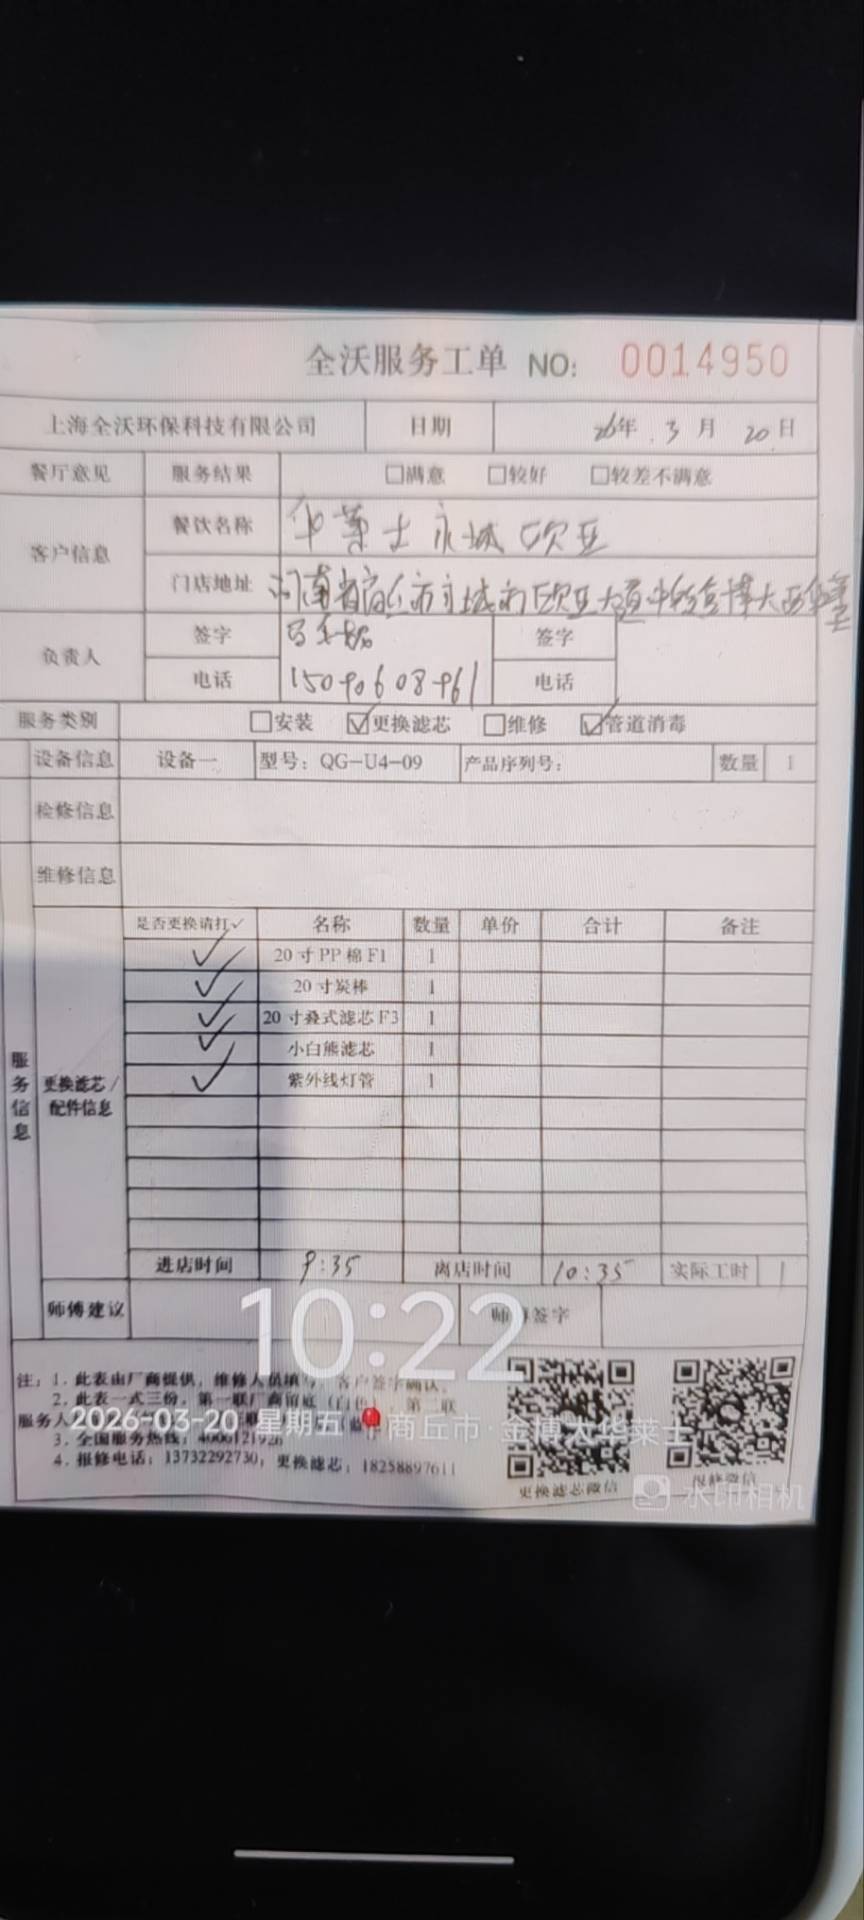 全沃服务工单 NO: 0014950
上海全沃环保科技有限公司 日期 26年 3 月 20 日
餐厅意见 服务结果 □满意 □较好 □较差不满意
客户信息 餐饮名称 华莱士永城欧亚
门店地址 河南省商丘市永城市欧亚大道中段金博大西华莱士
负责人 签字 签字
电话 15090608961 电话
服务类别 □安装 ☑更换滤芯 □维修 ☑管道消毒
设备信息 设备一 型号: QG-U4-09 产品序列号: 数量 1
检修信息
维修信息
服务信息 更换滤芯/配件信息
是否更换请打✓ 名称 数量 单价 合计 备注
✓ 20寸PP棉F1 1
✓ 20寸炭棒 1
✓ 20寸叠式滤芯F3 1
✓ 小白熊滤芯 1
✓ 紫外线灯管 1
进店时间 9:35 离店时间 10:35 实际工时 1
师傅建议 师傅签字
10:22
注: 1. 此表由厂商提供, 维修人员填写, 客户签字确认。
2. 此表一式三份, 第一联厂商留底(白色), 第二联
服务人
2026-03-20 星期五 商丘市·金博大华莱士
3. 全国服务热线: 4000121928
4. 报修电话: 13732292730, 更换滤芯: 18258897611
更换滤芯微信 报修微信
水印相机